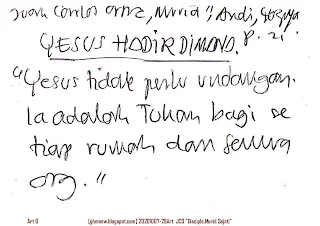 Juan Carlos Ortiz, Murid", Andi, Yogya
p. 21.
YESUS HADIR DIMANA.
"Yesus tidak perlu undangan.
Ia adalah Tuhan bagi se
tiap rumah dan semua
org."
Art 6 [ghmnew.blogspot.com] 20201007-29Art JCO "Disciple,Murid Sejati"